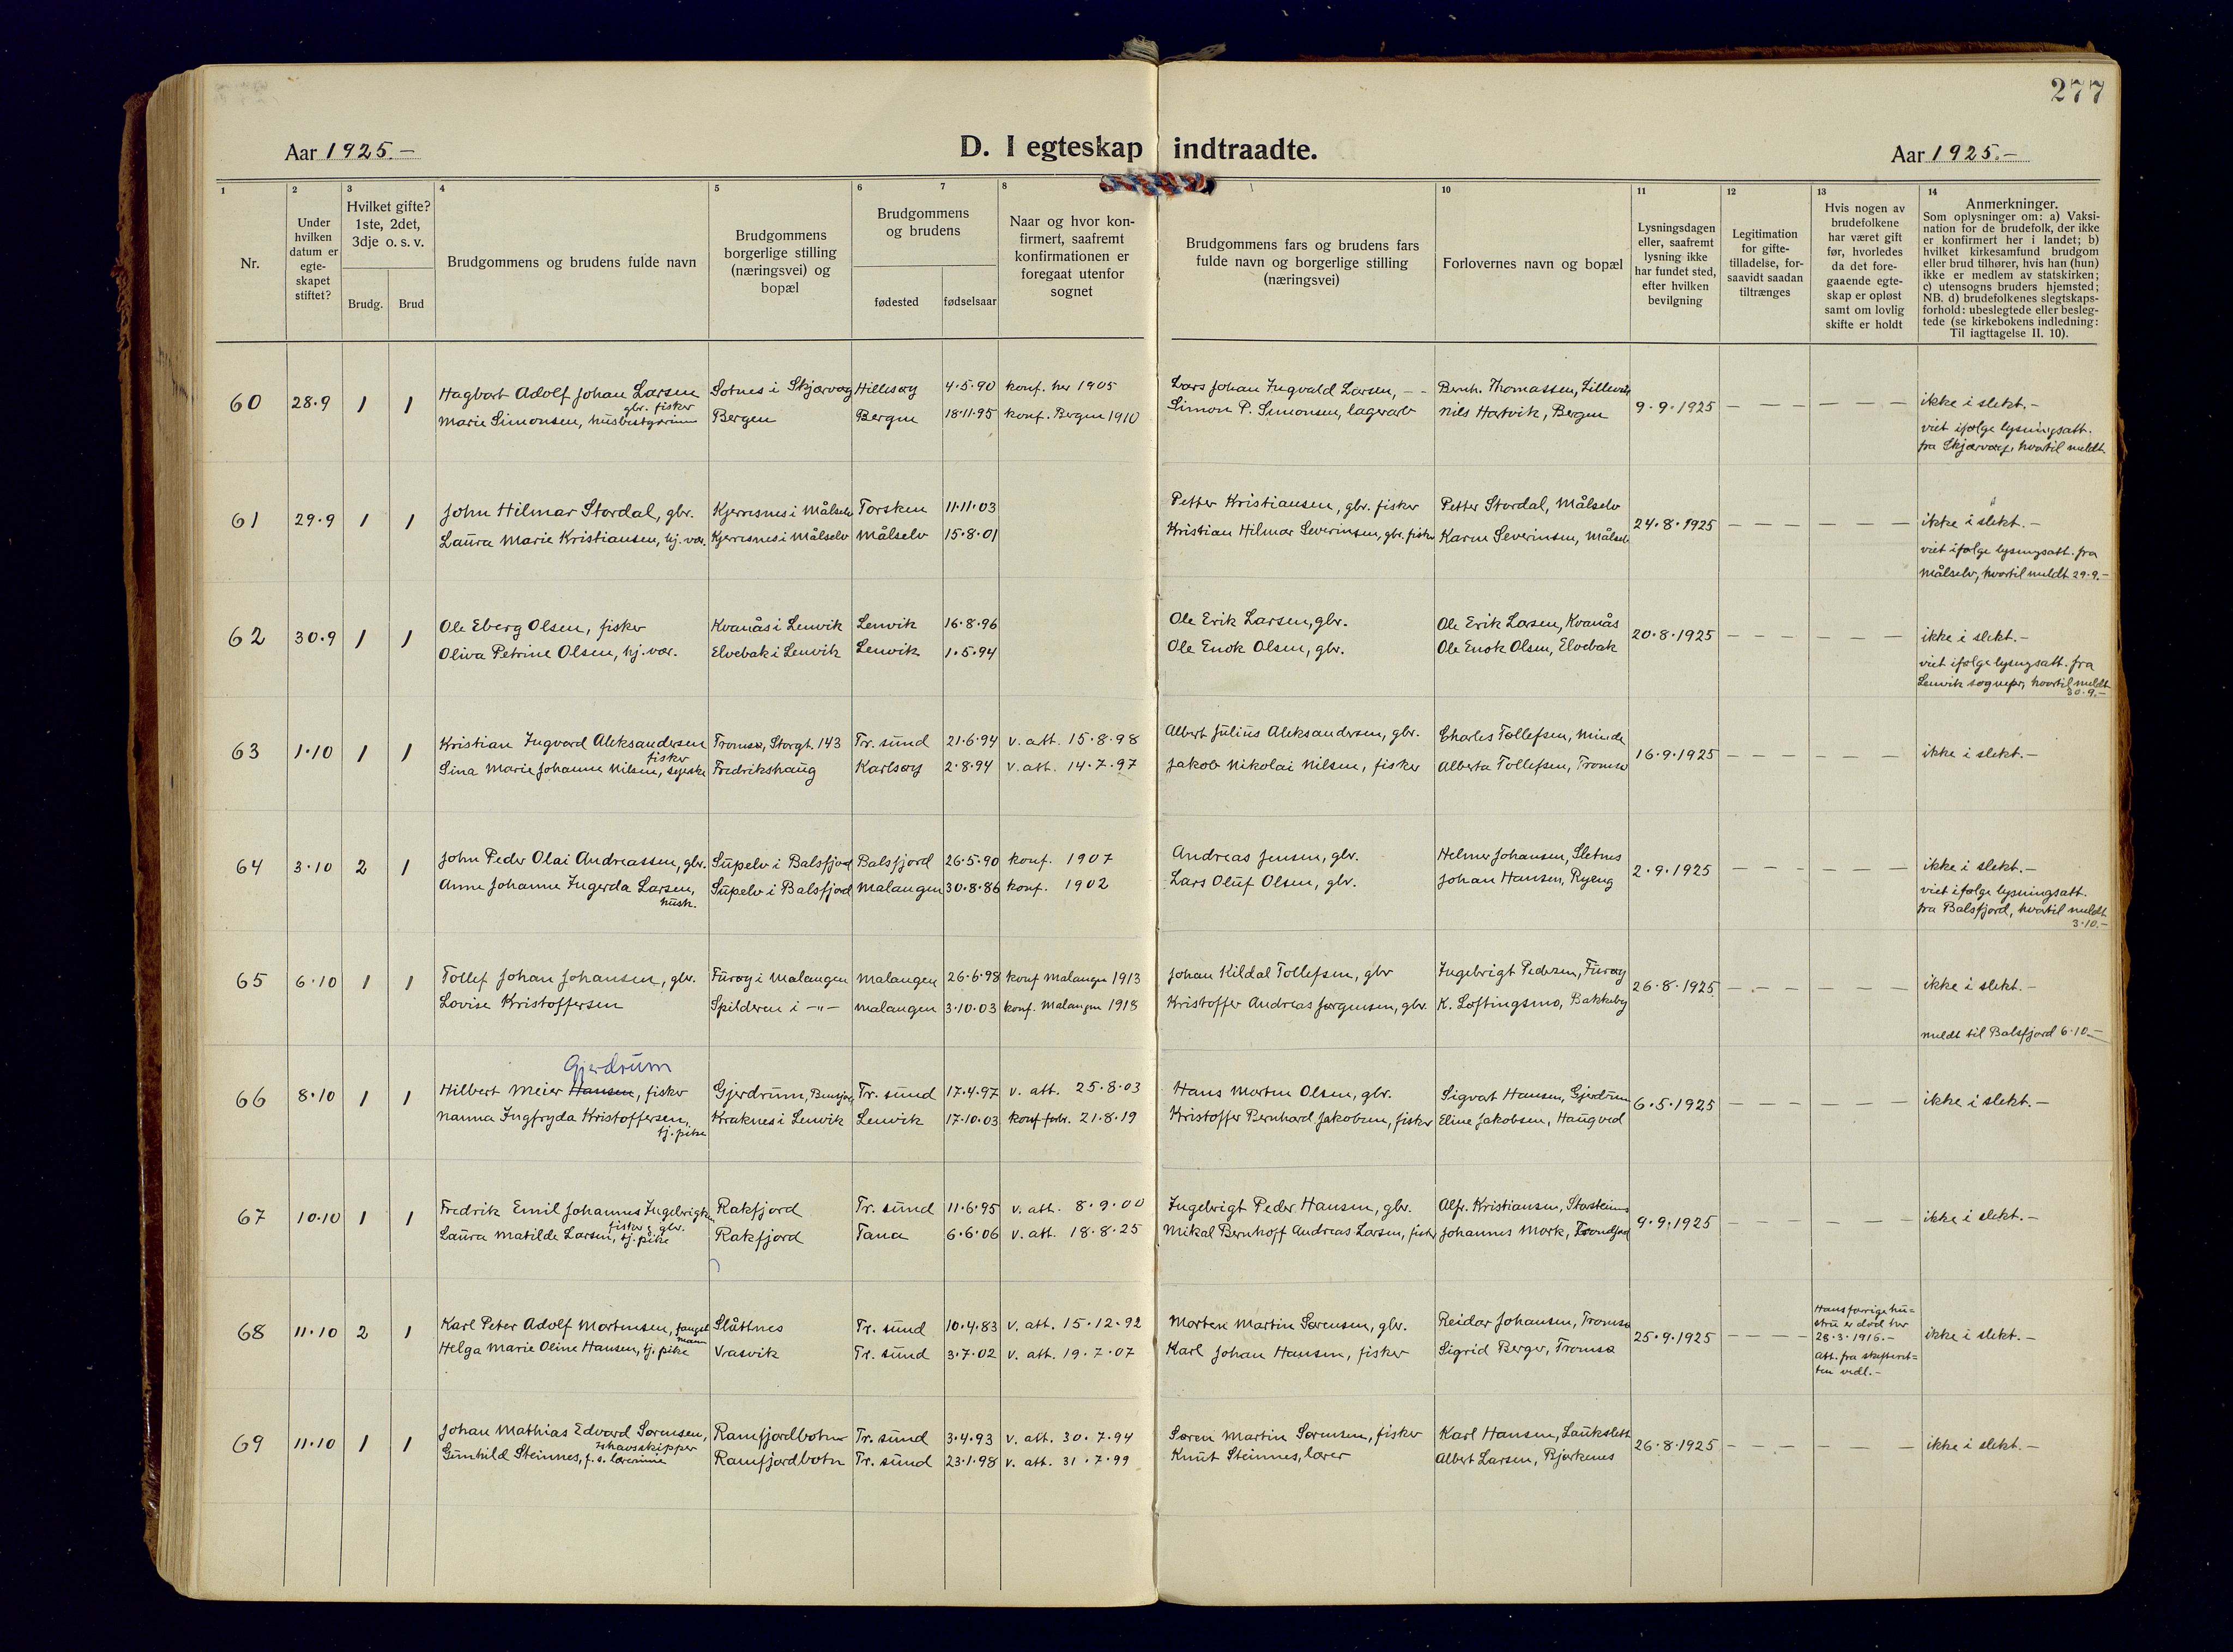 277
Aar 1925.-
D. I egteskap indtraadte.
Aar 1925.-
1 2 3 4 5 6 7 8 10 11 12 13 14
Nr.
Under hvilken datum er egte-skapet stiftet?
Hvilket gifte? 1ste, 2det, 3dje o. s. v.
Brudg. Brud
Brudgommens og brudens fulde navn
Brudgommens borgerlige stilling (næringsvei) og bopæl
Brudgommens og brudens
fødested fødselsaar
Naar og hvor kon-firmert, saafremt konfirmationen er foregaat utenfor sognet
Brudgommens fars og brudens fars fulde navn og borgerlige stilling (næringsvei)
Forlovernes navn og bopæl
Lysningsdagen eller, saafremt lysning ikke har fundet sted, efter hvilken bevilgning
Legitimation for gifte-tilladelse, for-saavidt saadan tiltrænges
Hvis nogen av brudefolkene har været gift før, hvorledes da det fore-gaaende egte-skap er opløst samt om lovlig skifte er holdt
Anmerkninger.
Som oplysninger om: a) Vaksi-nation for de brudefolk, der ikke er konfirmert her i landet; b) hvilket kirkesamfund brudgom eller brud tilhører, hvis han (hun) ikke er medlem av statskirken; c) utensogns bruders hjemsted; NB. d) brudefolkenes slegtskaps-forhold: ubeslegtede eller besleg-tede (se kirkebokens indledning: Til iagttagelse II. 10).
60 28.9 1 1 Hagbart Adolf Johan Larsen gbr. fisker Sotnes i Skjærvøy Hillesøy 4.5.90 konf. her 1905 Lars Johan Ingvald Larsen, - - Bernh. Thomassen, 9.9.1925 - - - - - - ikke i slekt.-
Marie Simonsen, husbestyrerinne Bergen Bergen 18.11.95 konf. Bergen 1910 Simon P. Simonsen, lagerarb Nils Hartvik, Bergen
viet ifølge lysningsatt.
fra Skjærvøy, hvortil meldt
61 29.9 1 1 John Hilmar Stordal, gbr. Kjerresnes i Målselv Torsken 11.11.03 Petter Kristiansen, gbr. fisker Petter Stordal, Målselv 24.8.1925 - - - - - - ikke i slekt.-
Laura Marie Kristiansen, hj. vær. Kjerresnes i Målselv Målselv 15.8.01 Kristian Hilmar Severinsen, gbr. fisker Karen Severinsen, Målselv
viet ifølge lysningsatt. fra
Målselv, hvortil meldt 29.9.-
62 30.9 1 1 Ole Eberg Olsen, fisker Kvanås i Lenvik Lenvik 16.8.96 Ole Erik Larsen, gbr. Ole Erik Larsen, Kvanås 20.8.1925 - - - - - - ikke i slekt.-
Oliva Petrine Olsen, hj. vær. Elvebak i Lenvik Lenvik 1.5.94 Ole Enok Olsen, gbr. Ole Enok Olsen, Elvebak
viet ifølge lysngsatt. fra
Lenvik sognepr, hvortil meldt
30.9.-
63 1.10 1 1 Kristian Ingvard Aleksandersen fisker Tromsø, Storgt. 143 Tr. sund 21.6.94 v. att. 15.8.98 Albert Julius Aleksandersen, gbr. Charles Tollefsen, Minde 16.9.1925 - - - - - - ikke i slekt.-
Sina Marie Johanne Nilsen, syerske Fredrikshaug Karlsøy 2.8.94 v. att. 14.7.97 Jakob Nikolai Nilsen, fisker Alberta Tollefsen, Tromsø
64 3.10 2 1 John Peder Olai Andreassen, gbr. Supelv i Balsfjord Balsfjord 26.5.90 konf. 1907 Andreas Jensen, gbr. Helmer Johansen, Sletnes 2.9.1925 - - - - - - ikke i slekt.-
Anne Johanne Ingerda Larsen, hush. Supelv i Balsfjord Malangen 30.8.86 konf. 1902 Lars Oluf Olsen, gbr. Johan Hansen, Ryeng
viet ifølge lysningsatt.
fra Balsfjord, hvortil meldt
3.10.-
65 6.10 1 1 Tollef Johan Johansen, gbr. Furøy i Malangen Malangen 26.6.98 konf Malangen 1913 Johan Kildal Tollefsen, gbr Ingebrigt Pedersen, Furøy 26.8.1925 - - - - - - ikke i slekt.-
Lovise Kristoffersen Spilderen i -"- Malangen 3.10.03 konf. Malangen 1918 Kristoffer Andreas Jørgensen, gbr. K. Loftingsmo, Bakkeby
meldt til Balsfjord 6.10.-
Gjerdrum
66 8.10 1 1 Hilbert Meier Hansen, fisker Gjerdrum, Tr. sund 17.4.97 v. att. 25.8.03 Hans Morten Olsen, gbr. Sigvat Hansen, Gjerdrum 6.5.1925 - - - - - - ikke i slekt.-
Nanna Ingfryda Kristoffersen, tj. pike Kraknes i Lenvik Lenvik 17.10.03 konf forb. 21.8.19 Kristoffer Bernhard Jakobsen, fisker Eline Jakobsen, Haugved
67 10.10 1 1 Fredrik Emil Johannes Ingebrigtsen fisker & gbr. Rakfjord Tr. sund 11.6.95 v. att. 8.9.00 Ingebrigt Peder Hansen, gbr. Alfr. Kristiansen, Storsteinnes 9.9.1925 - - - - - - ikke i slekt.-
Laura Matilde Larsen, tj. pike Rakfjord Tana 6.6.06 v. att. 18.8.25 Mikal Bernhoff Andreas Larsen, fisker Johannes Mork, Trondhjem
68 11.10 2 1 Karl Peter Adolf Mortensen, fangstmann Slåttnes Tr. sund 10.4.83 v. att. 15.12.92 Morten Martin Sørensen, gbr. Reidar Johansen, Tromsø 25.9.1925 - - - - Hans forrige hu=stru er død her 28.3.1916.- Att. fra skifteret=ten vedl.- ikke i slekt.-
Helga Marie Oline Hansen, tj. pike Vrasvik Tr. sund 3.7.02 v. att. 19.7.07 Karl Johan Hansen, fisker Sigrid Berger, Tromsø
69 11.10 1 1 Johan Mathias Edvard Sørensen, ishavsskipper Ramfjordbotn Tr. sund 3.4.93 v. att. 30.7.94 Søren Martin Sørensen, fisker Karl Hansen, Laukslett 26.8.1925 - - - - - - ikke i slekt.-
Gunhild Steinnes, f. s. lærerinne Ramfjordbotn Tr. sund 23.1.98 v. att. 31.7.99 Knut Steinnes, lærer Albert Larsen, Bjørkenes